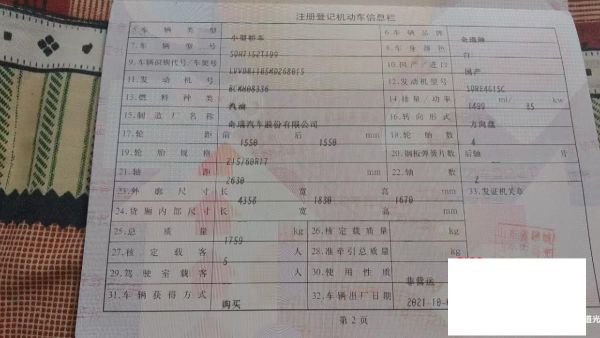 注册登记机动车信息栏
5.车辆类型 小型轿车 6.车辆品牌 奇瑞牌
7.车辆型号 SQR7152T199 8.车身颜色 白
9.车辆识别代号/车架号 10.国产/进口 国产
11.发动机号 12.发动机型号 SQRE4G15C
13.燃料种类 汽油 14.排量/功率 1499 ml/ 85 kw
15.制造厂名称 奇瑞汽车股份有限公司 16.转向形式 方向盘
17.轮距 前 1550 后 1550 mm 18.轮胎数 4
19.轮胎规格 215/60R17 20.钢板弹簧片数 后轴 片
21.轴距 2630 mm 22.轴数 2
23.外廓尺寸 长 4358 宽 1830 高 1670 mm 33.发证机关章
24.货厢内部尺寸 长 宽 高 mm
25.总质量 1759 kg 26.核定载质量 kg
27.核定载客 5 人 28.准牵引总质量 kg
29.驾驶室载客 人 30.使用性质 非营运
31.车辆获得方式 购买 32.车辆出厂日期 2021-10-
第2页